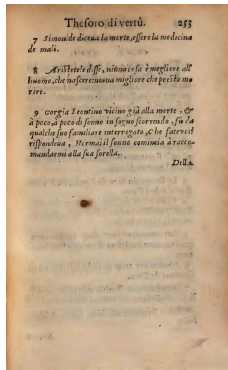 Thesoro di vertù. 253
7 Simonide diceua la morte, essere la medicina
de mali.
8 Aristotele disse, niuna cosa è megliore all'
huomo, che nascere; niuna migliore che presto mo
rire.
9 Gorgia Leontino vicino già alla morte, &
à poco, à poco di sonno in sogno scorrendo, fù da
qualche suo familiare interrogato, che
rispondeua, Hormai il sonno comincia à racco-
mandarmi alla sua sorella.
Della